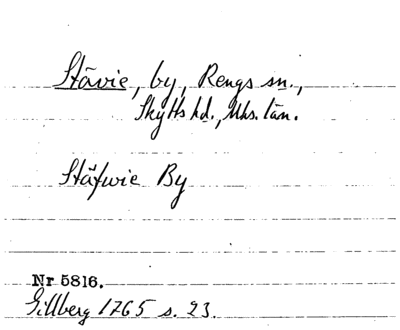 Stävie, by, Rengs sn.,
Skytts hd., Mhs. län.
Ståfwie By
Nr 5816.
Gillberg 1765 s. 23.